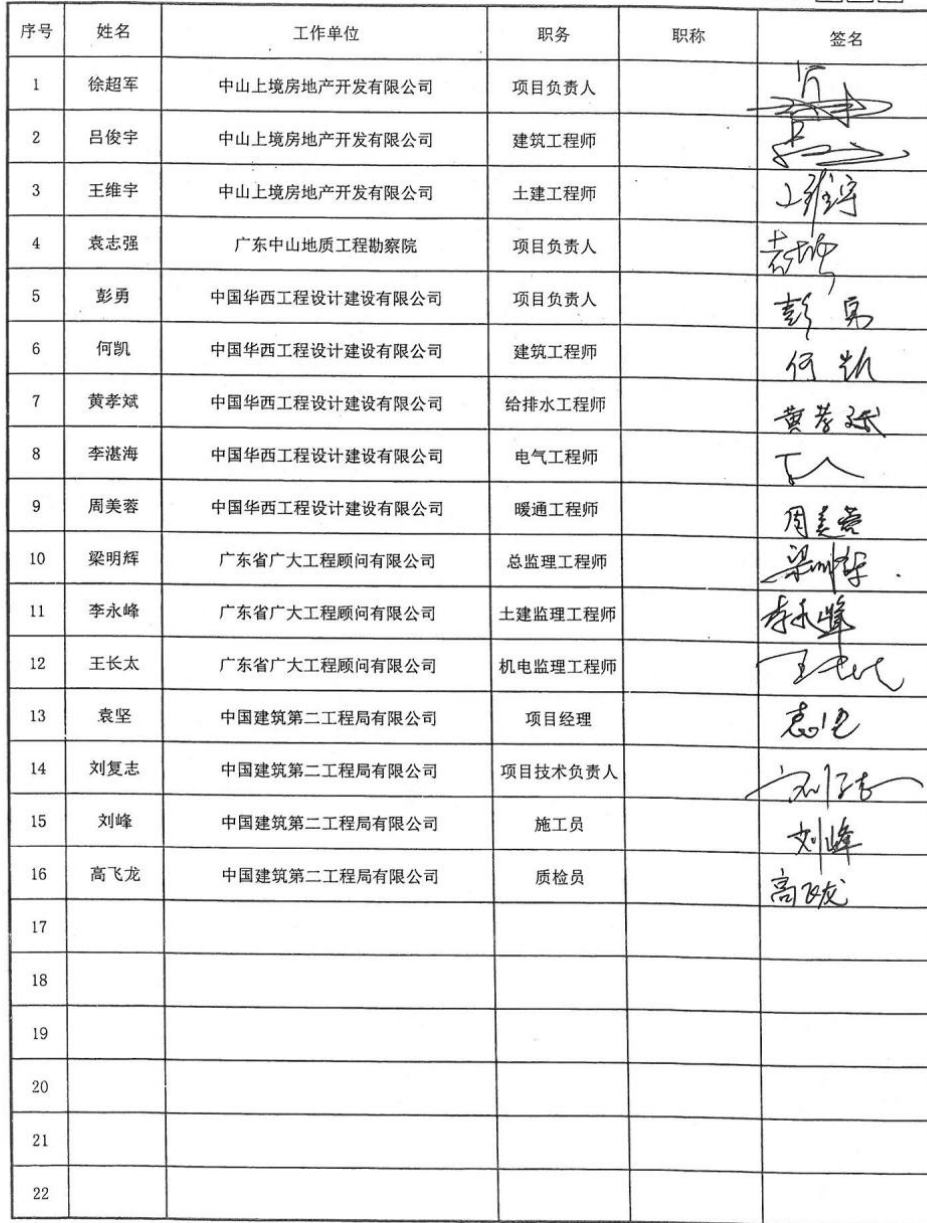 序号 姓名 工作单位 职务 职称 签名
1 徐超军 中山上境房地产开发有限公司 项目负责人
2 吕俊宇 中山上境房地产开发有限公司 建筑工程师
3 王维宇 中山上境房地产开发有限公司 土建工程师 王维宇
4 袁志强 广东中山地质工程勘察院 项目负责人
5 彭勇 中国华西工程设计建设有限公司 项目负责人 彭勇
6 何凯 中国华西工程设计建设有限公司 建筑工程师 何凯
7 黄孝斌 中国华西工程设计建设有限公司 给排水工程师 黄孝斌
8 李湛海 中国华西工程设计建设有限公司 电气工程师
9 周美蓉 中国华西工程设计建设有限公司 暖通工程师 周美蓉
10 梁明辉 广东省广大工程顾问有限公司 总监理工程师 梁明辉
11 李永峰 广东省广大工程顾问有限公司 土建监理工程师 李永峰
12 王长太 广东省广大工程顾问有限公司 机电监理工程师
13 袁坚 中国建筑第二工程局有限公司 项目经理 袁坚
14 刘复志 中国建筑第二工程局有限公司 项目技术负责人
15 刘峰 中国建筑第二工程局有限公司 施工员 刘峰
16 高飞龙 中国建筑第二工程局有限公司 质检员 高飞龙
17
18
19
20
21
22